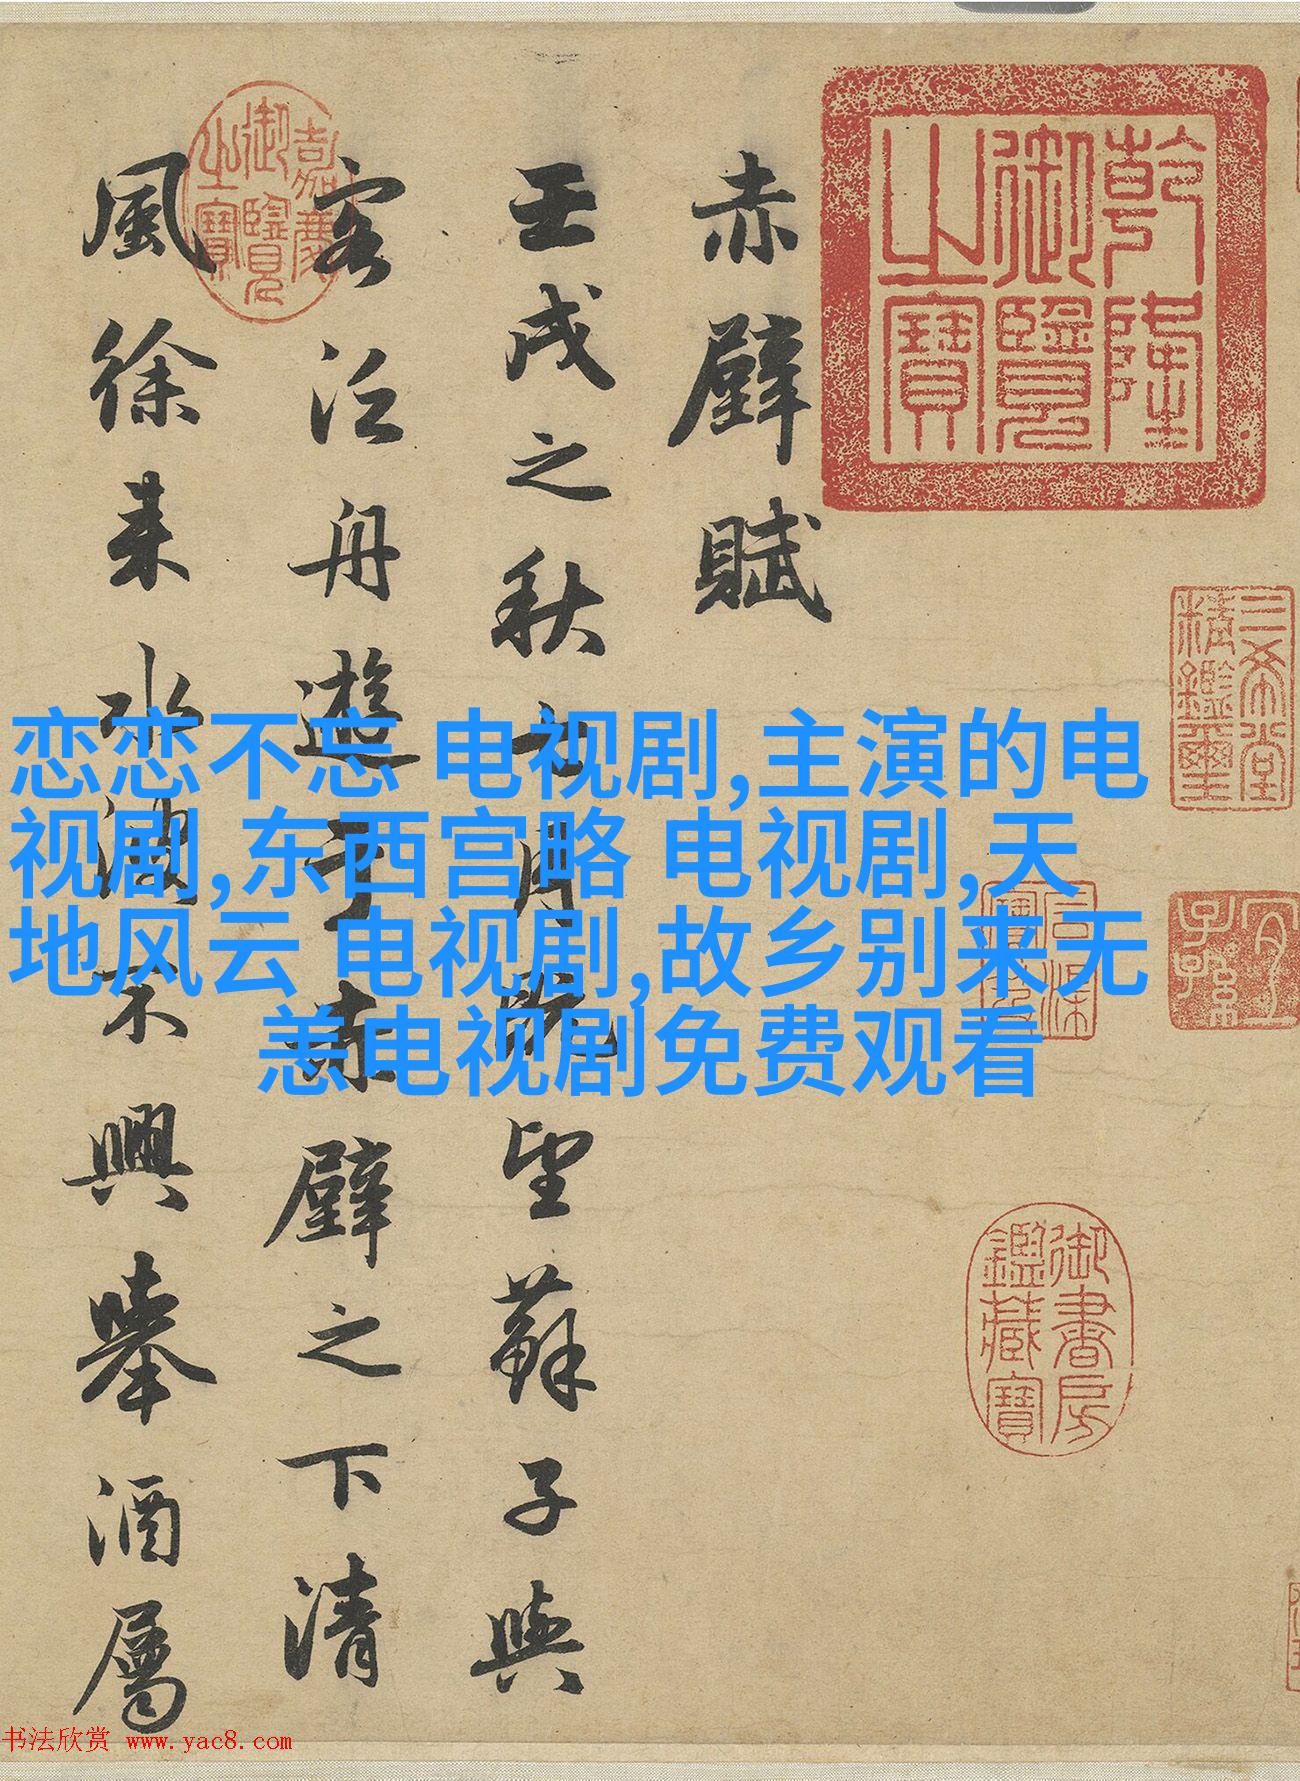 乾隆御覽之寶
三希堂精鑑璽
宜子孫
石渠寶笈
御書房鑑藏寶
赤壁賦
壬戌之秋七月既望蘇子與
客泛舟遊于赤壁之下清
風徐来水波不興舉酒屬
嘉慶御覽之寶
恋恋不忘 电视剧,主演的电
视剧,东西宫略 电视剧,天
地风云 电视剧,故乡别来无
恙电视剧免费观看
书法欣赏 www.yac8.com